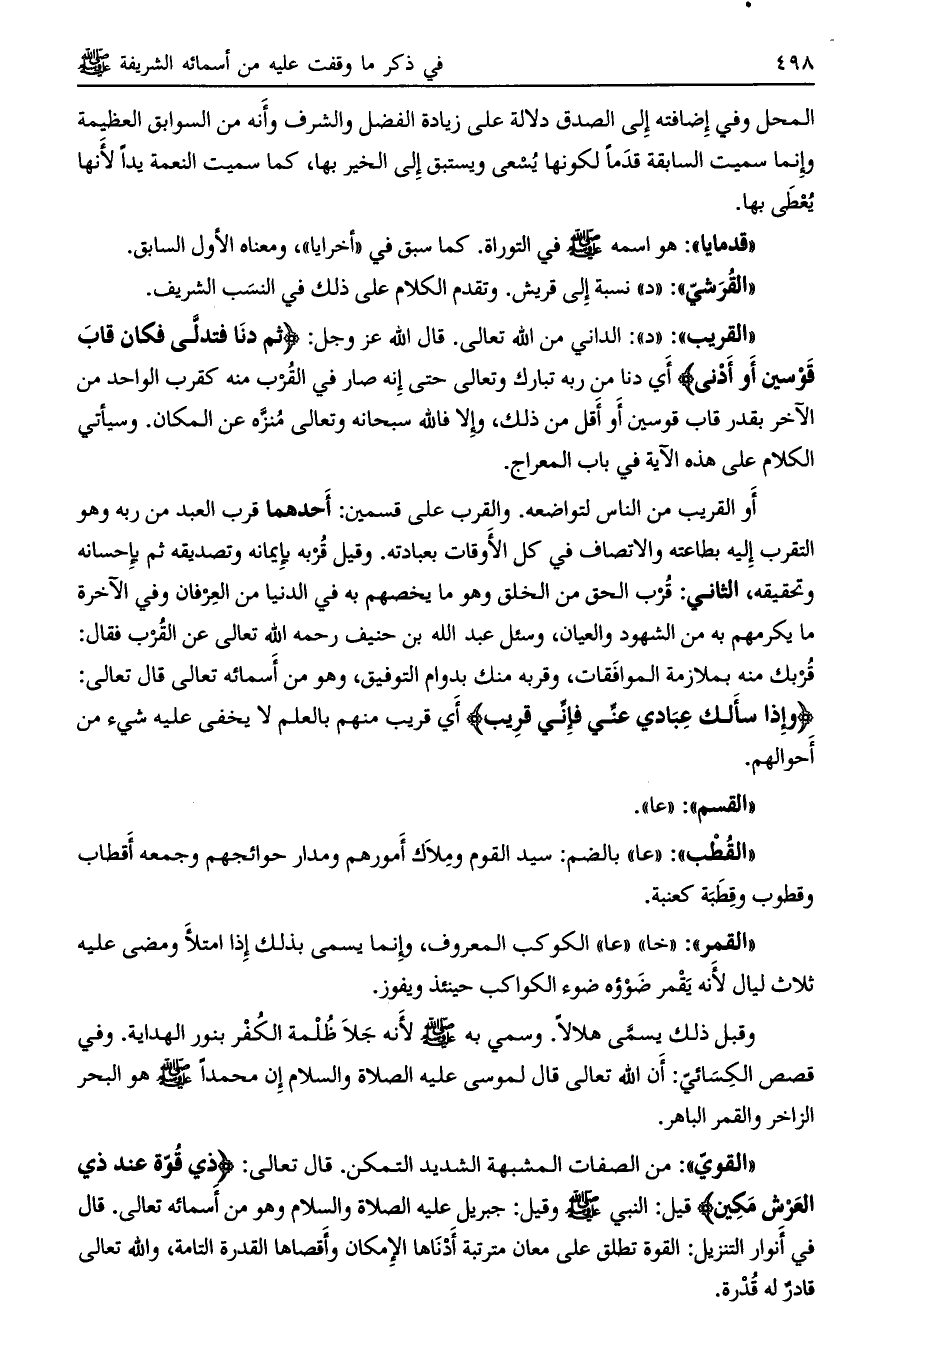 ٤٩٨ في ذكر ما وقفت عليه من أسمائه الشريفة ﷺ
المحل وفي إضافته إلى الصدق دلالة على زيادة الفضل والشرف وأنه من السوابق العظيمة
وإنما سميت السابقة قدَماً لكونها يُسْعى ويستبق إلى الخير بها، كما سميت النعمة يداً لأنها
يُعْطَى بها.
«قدمايا»: هو اسمه ﷺ في التوراة. كما سبق في «أخرايا»، ومعناه الأول السابق.
«القُرَشيّ»: «د» نسبة إلى قريش. وتقدم الكلام على ذلك في النسَب الشريف.
«القريب»: «د»: الداني من الله تعالى. قال الله عز وجل: ﴿ثم دنَا فتدلَّى فكان قابَ
قَوْسين أو أَدْنى﴾ أي دنا من ربه تبارك وتعالى حتى إنه صار في القُرْب منه كقرب الواحد من
الآخر بقدر قاب قوسين أو أقل من ذلك، وإلا فالله سبحانه وتعالى مُنزَّه عن المكان. وسيأتي
الكلام على هذه الآية في باب المعراج.
أو القريب من الناس لتواضعه. والقرب على قسمين: أحدهما قرب العبد من ربه وهو
التقرب إليه بطاعته والاتصاف في كل الأوقات بعبادته. وقيل قُرْبه بإيمانه وتصديقه ثم بإحسانه
وتحقيقه، الثاني: قُرْب الحق من الخلق وهو ما يخصهم به في الدنيا من العِرْفان وفي الآخرة
ما يكرمهم به من الشهود والعيان، وسئل عبد الله بن حنيف رحمه الله تعالى عن القُرْب فقال:
قُرْبك منه بملازمة الموافَقات، وقربه منك بدوام التوفيق، وهو من أسمائه تعالى قال تعالى:
﴿وإذا سأَلك عِبَادي عنِّي فإنِّي قرِيب﴾ أي قريب منهم بالعلم لا يخفى عليه شيء من
أحوالهم.
«القسم»: «عا».
«القُطْب»: «عا» بالضم: سيد القوم ومِلاَك أمورهم ومدار حوائجهم وجمعه أقطاب
وقطوب وقِطَبَة كعنبة.
«القمر»: «خا» «عا» الكوكب المعروف، وإنما يسمى بذلك إذا امتلأ ومضى عليه
ثلاث ليال لأنه يَقْمر ضَوْؤه ضوء الكواكب حينئذ ويفوز.
وقبل ذلك يسمَّى هلالاً. وسمي به ﷺ لأنه جَلاَ ظُلْمة الكُفْر بنور الهداية. وفي
قصص الكِسَائيّ: أن الله تعالى قال لموسى عليه الصلاة والسلام إن محمداً ﷺ هو البحر
الزاخر والقمر الباهر.
«القويّ»: من الصفات المشبهة الشديد التمكن. قال تعالى: ﴿ذي قُوّة عند ذي
العَرْش مَكِين﴾ قيل: النبي ﷺ وقيل: جبريل عليه الصلاة والسلام وهو من أسمائه تعالى. قال
في أنوار التنزيل: القوة تطلق على معان مترتبة أَدْنَاها الإمكان وأقصاها القدرة التامة، والله تعالى
قادرٌ له قُدْرة.